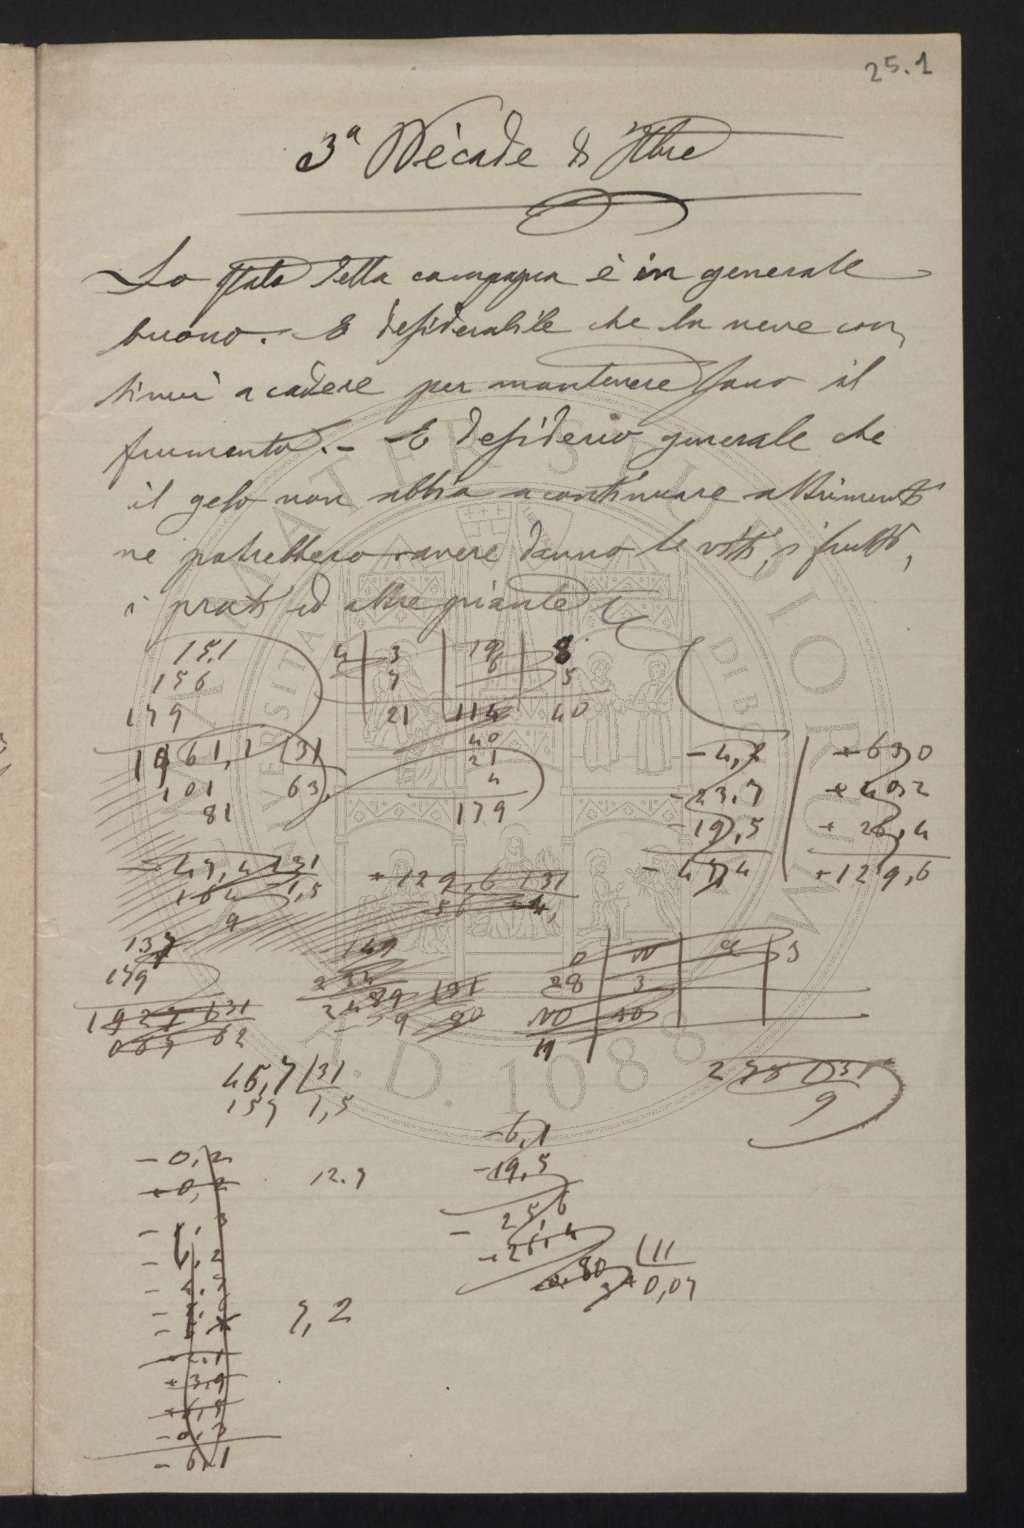 25.1
3ª Decade di Xbre
Lo stato della campagna è in generale
buono. - È desiderabile che la neve con
tinui a cadere per mantenere sano il
frumento. - È desiderio generale che
il gelo non abbia a continuare altrimenti
ne potrebbero avere danno le viti, i frutti,
i prati ed altre piante
15,1
156
179
61,1 31
101 63
81
4 3 19 8
7 6 5
21 114 40
40
21
4
179
- 4,2 + 63,0
- 23,7 + 40,2
- 19,5 + 26,4
- 47,4 + 129,6
- 47,4 31
164 1,5
9
+ 129,6 31
56 4,
137
179
1927 31
067 62
149
234
2489 31
9 80
46,7 31
157 1,5
278 31
9
- 6,1
- 19,5
- 25,6
+ 26,4
0,80 11
3 + 0,07
- 0,2
+ 0,2
12.7
7,2
- 2.1
+ 3,9
- 0,3
- 6,1
ALMA MATER STUDIORUM
A.D. 1088